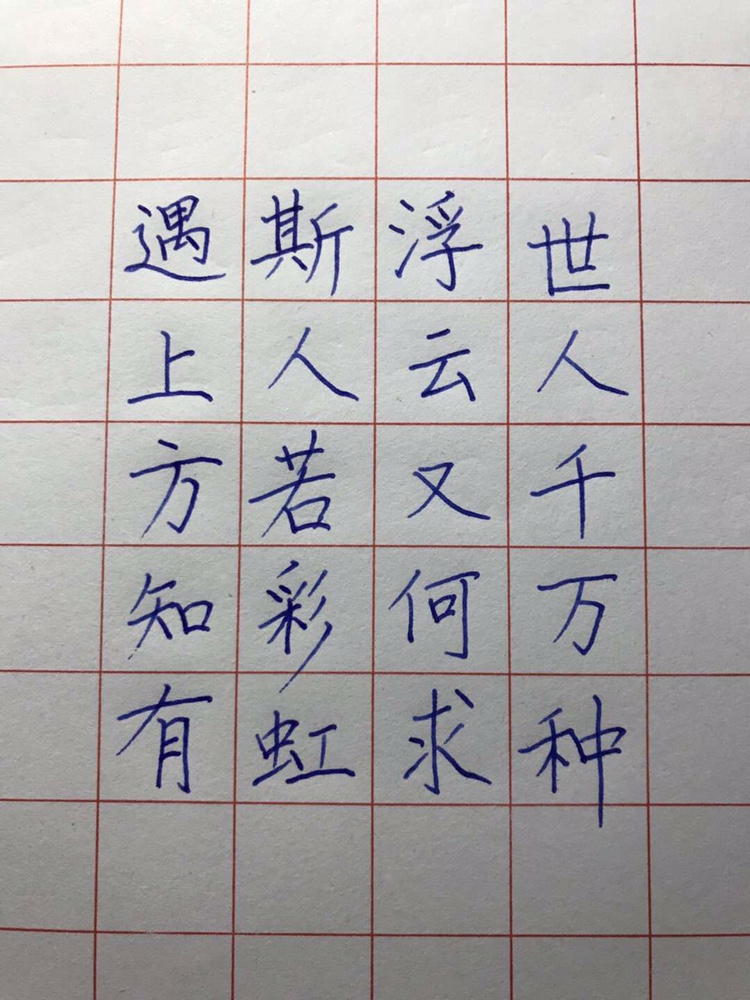 世人千万种
浮云又何求
斯人若彩虹
遇上方知有